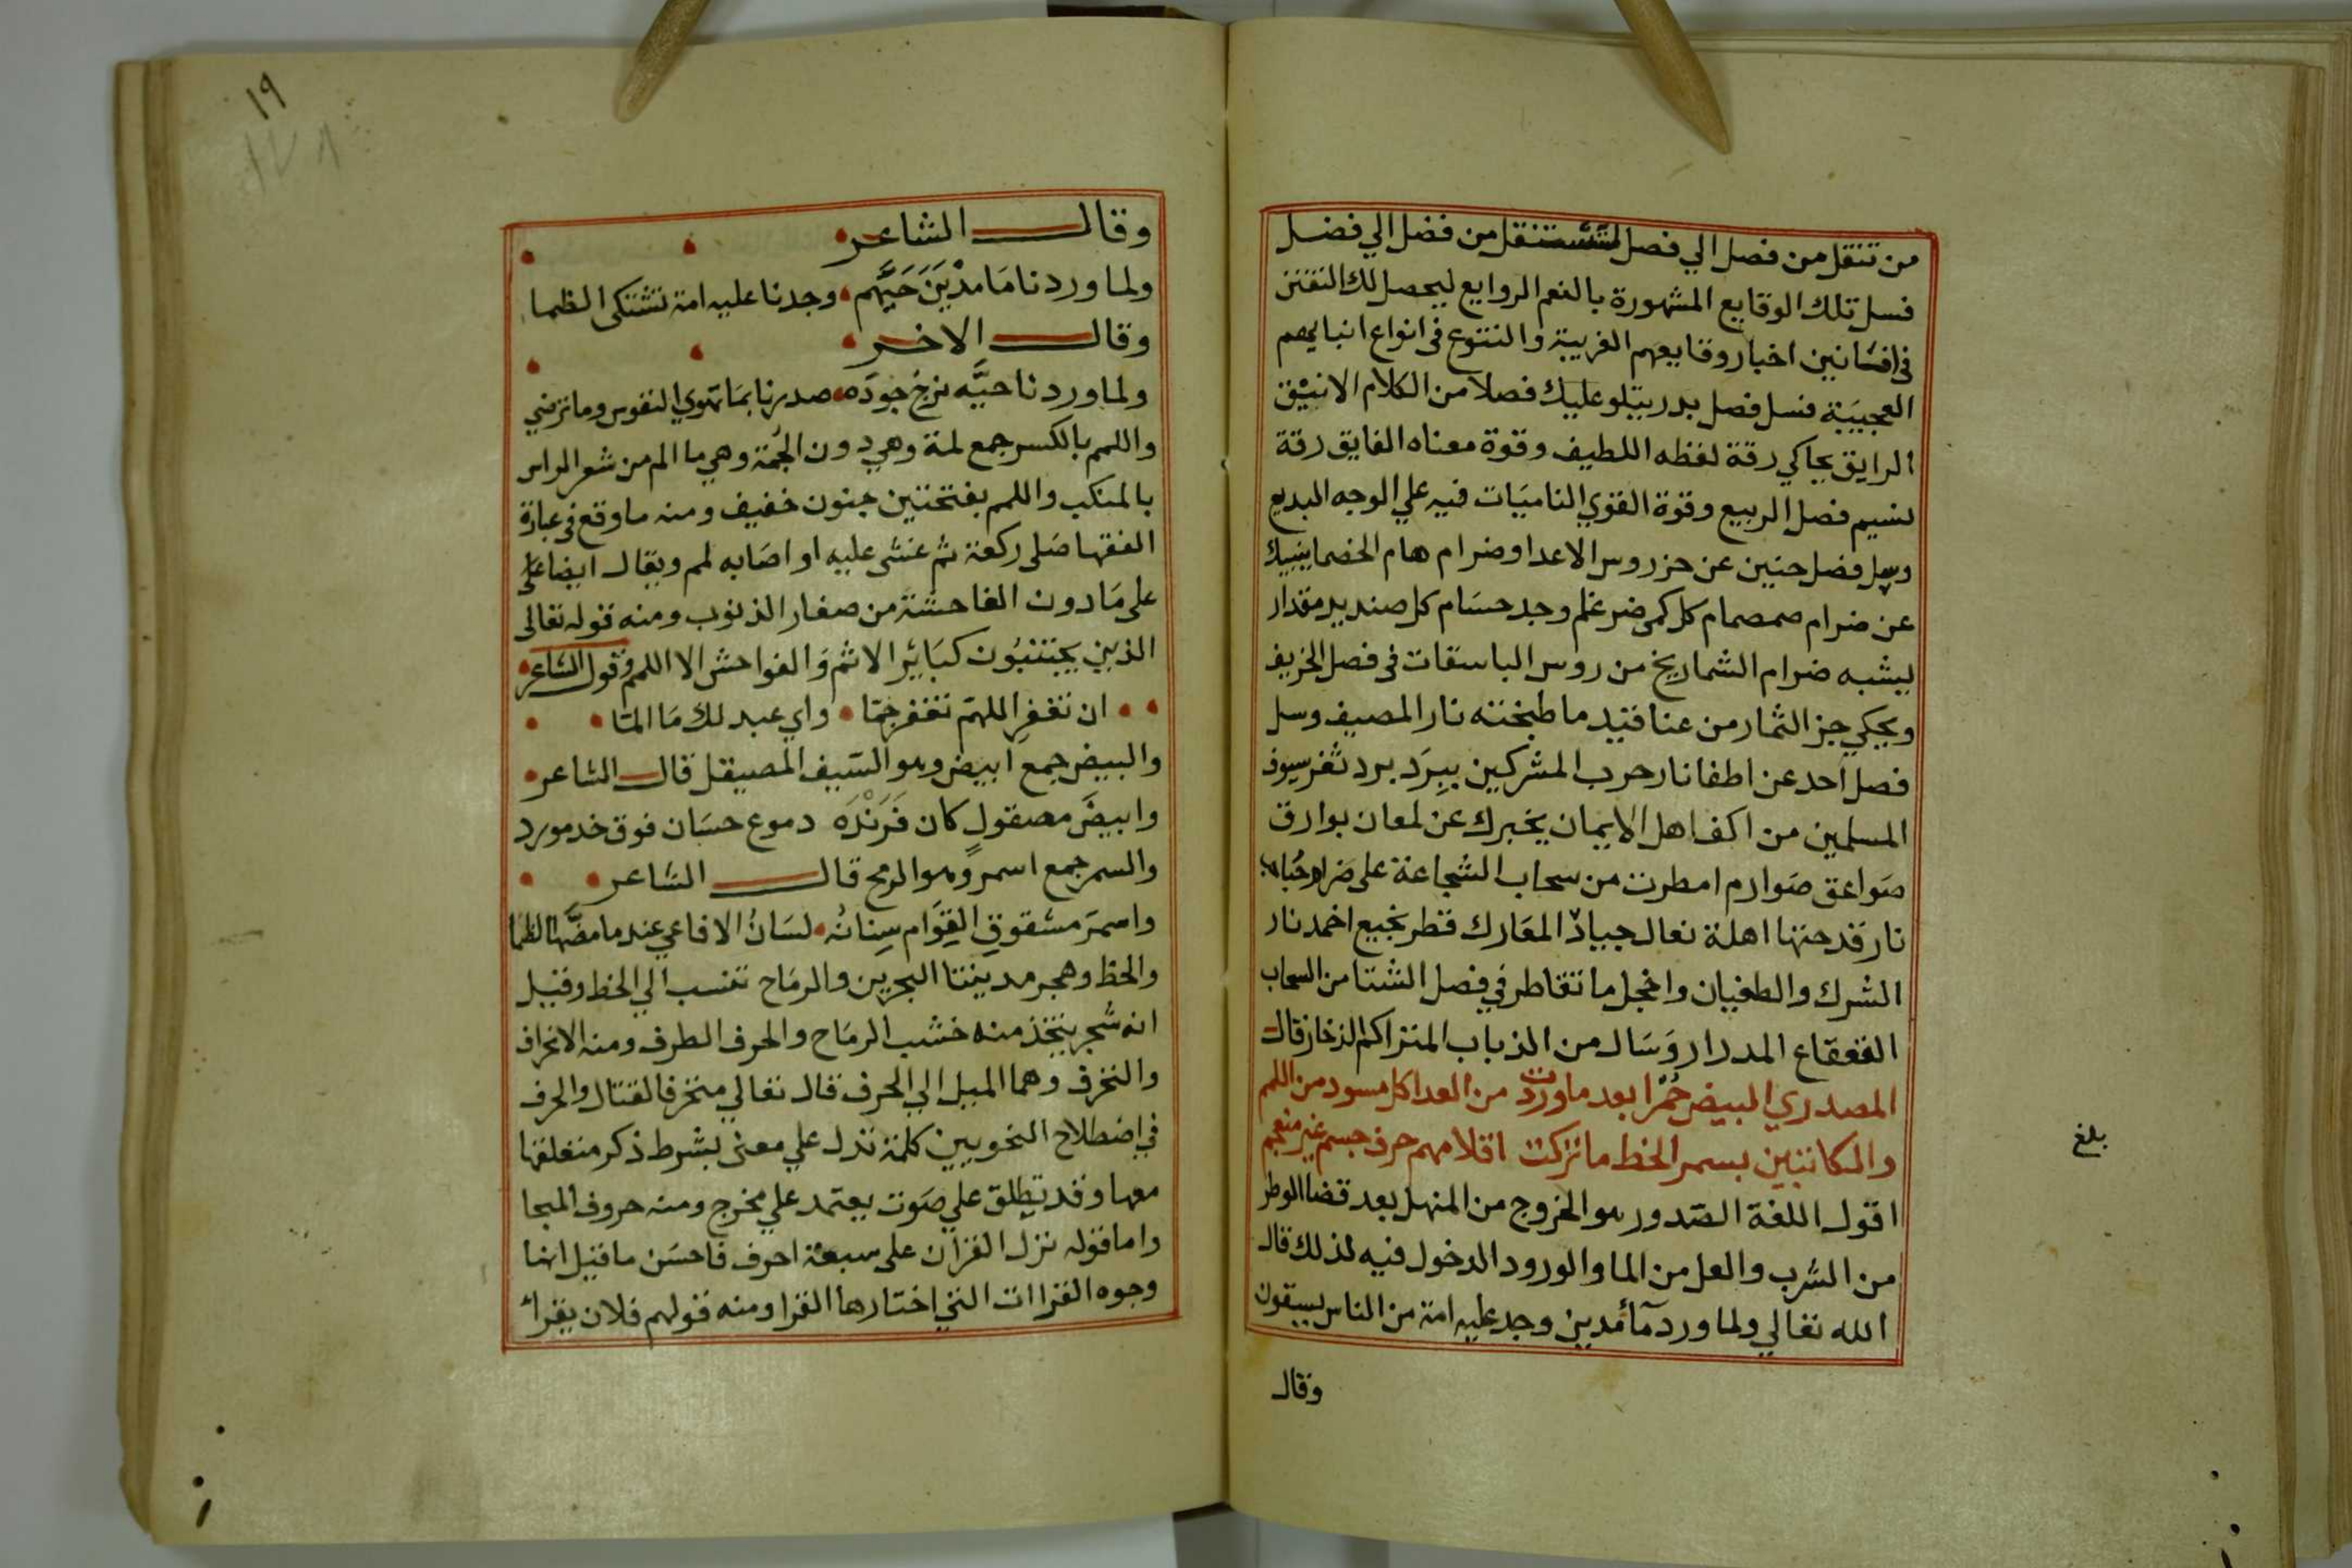 من تنقل من فصل الي فصل لتنتقل من فضل الي فضل
فسل تلك الوقايع المشهورة بالنعم الروايع ليحصل لك التفنن
في افسانين اخبار وقايعهم الغريبة والتنوع في انواع انبايهم
العجيبة فسل فصل بدر يتلو عليك فصلا من الكلام الانيق
الرايق يحاكي رقة لفظه اللطيف وقوة معناه الفايق رقة
نسيم فصل الربيع وقوة القوي الناميات فيه علي الوجه البديع
وسل فصل حنين عن حز روس الاعدا وضرام هام الخصما ينبيك
عن ضرام صمصام كل كمي ضرغام وجد حسام كل صنديد مقدار
يشبه ضرام الشماريخ من روس الباسقات في فصل الخريف
ويحكي جز الثمار من عناقيد ما طبخته نار المصيف وسل
فصل احد عن اطفا نار حرب المشركين ببرد برد ثغر سيوف
المسلمين من اكف اهل الايمان يخبرك عن لمعان بوارق
صواعق صوارم امطرت من سحاب الشجاعة علي ضرام حباب
نار قدحتها اهلة نعال جياد المعارك قطر نجيع اخمد نار
الشرك والطغيان واخجل ما تقاطر في فصل الشتا من السحاب
القعقاع المدرار وسال من الذباب المتراكم الذخار قال
المصدري البيض حمرا بعد ما وردت من العدا كل مسود من اللمم
والكاتبين بسمر الخط ما تركت اقلامهم حرف جسم غير منعجم
اقول اللغة الصدور هو الخروج من المنهل بعد قضا الوطر
من الشرب والعل من الما والورود الدخول فيه لذلك قال
الله تعالي ولما ورد ماء مدين وجد عليه امة من الناس يسقون
وقال
بلغ
١٩
١٧٨
وقال الشاعر
ولما وردنا ما مدين حيهم وجدنا عليه امة تشتكي الظما
وقال الاخر
ولما وردنا حيه نرتج جوده صدرنا بما تهوي النفوس وما ترضي
واللمم بالكسر جمع لمة وهي دون الجمة وهي ما الم من شعر الراس
بالمنكب واللمم بفتحتين جنون خفيف ومنه ما وقع في عبارة
الفقها صلي ركعة ثم غشي عليه او اصابه لمم ويقال ايضا علي
علي ما دون الفاحشة من صغار الذنوب ومنه قوله تعالي
الذين يجتنبون كبائر الاثم والفواحش الا اللمم وقول الشاعر
ان تغفر اللهم تغفر جما واي عبد لك ما الما
والبيض جمع ابيض وهو السيف المصيقل قال الشاعر
وابيض مصقول كان فرنده دموع حسان فوق خد مورد
والسمر جمع اسمر وهو الرمح قال الشاعر
واسمر مشقوق القوام سنانه لسان الافاعي عند ما مضها الظما
والخط وهجر مدينتا البحرين والرماح تنسب الي الخط وقيل
انه شجر يتخذ منه خشب الرماح والحرف الطرف ومنه الانحراف
والتحرف وهما الميل الي الحرف قال تعالي متحرفا لقتال والحرف
في اصطلاح النحويين كلمة تدل علي معني بشرط ذكر متعلقها
معها وقد يطلق علي صوت يعتمد علي مخرج ومنه حروف الهجا
واما قوله نزل القران علي سبعة احرف فاحسن ما قيل انها
وجوه القراات التي اختارها القرا ومنه قولهم فلان يقرأ